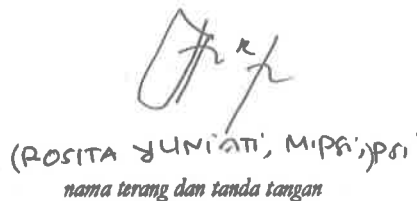 (ROSITA YUNIATI, MIPSi,)PSi
nama terang dan tanda tangan